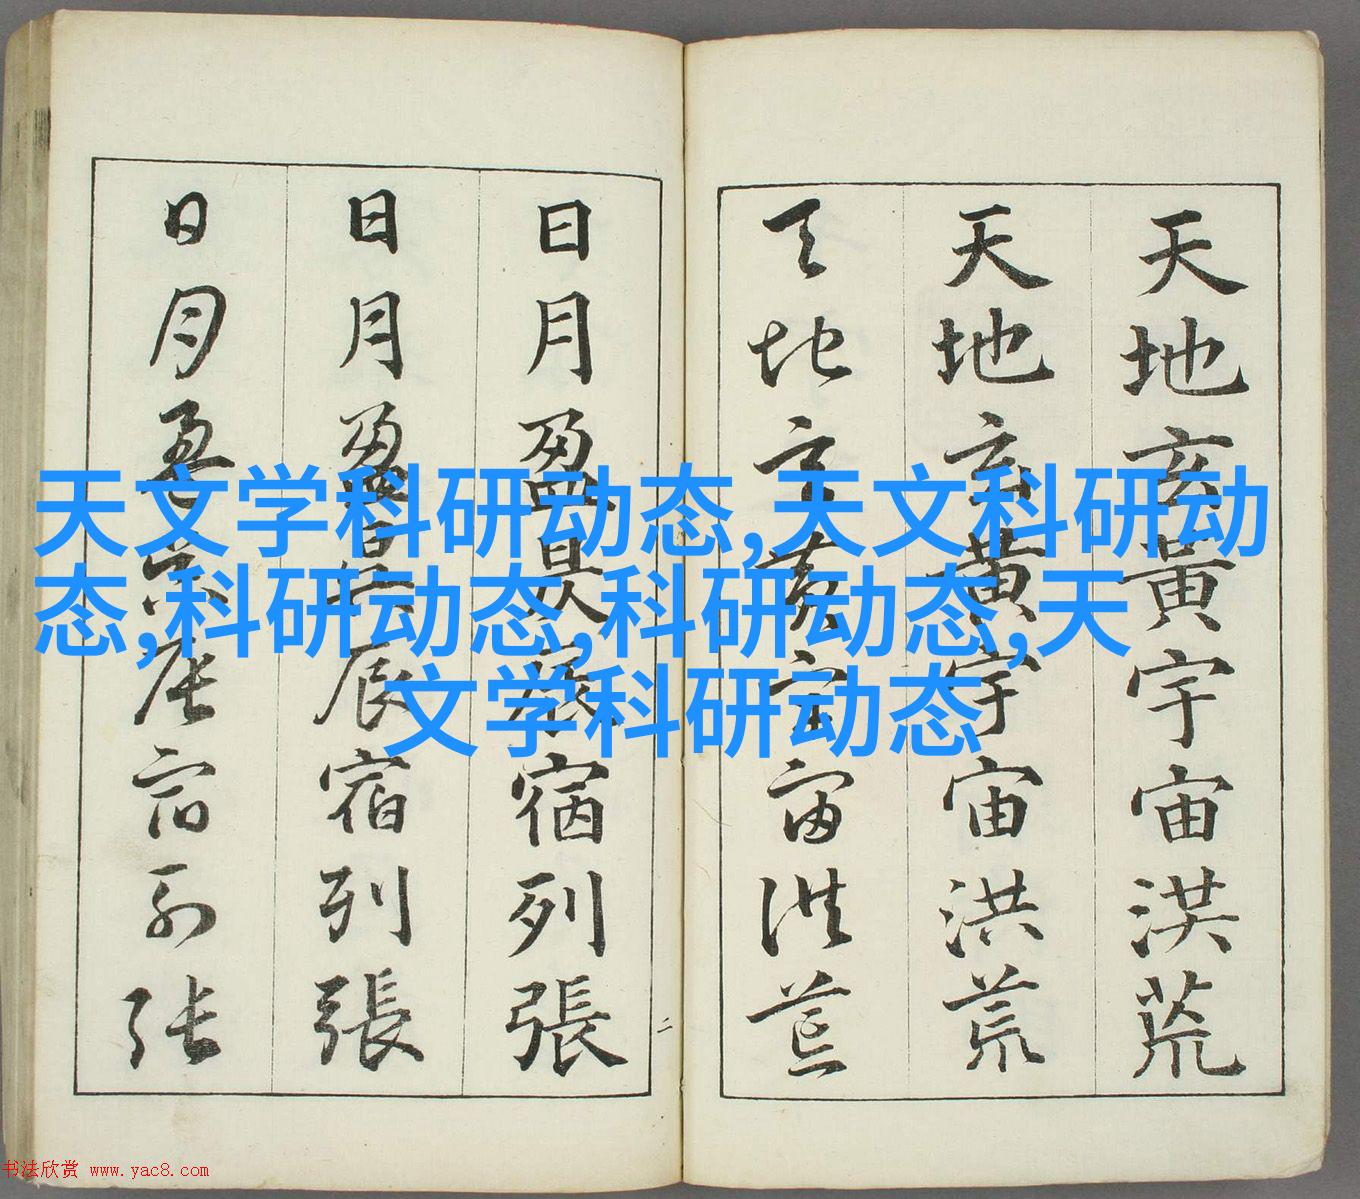 天地玄黃宇宙洪荒
天地玄黃宇宙洪荒
天地玄黃宇宙洪荒
日月盈昃辰宿列張
日月盈昃辰宿列張
日月盈昃辰宿列張
二
天文学科研动态,天文科研动
态,科研动态,科研动态,天
文学科研动态
书法欣赏 www.yac8.com